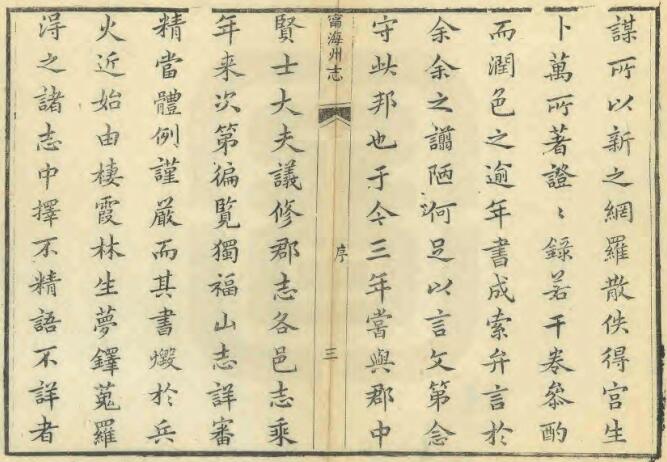 謀所以新之網羅散佚得宫生
卜萬所著證〻錄若干卷叅酌
而潤色之逾年書成索弁言於
余余之譾陋何足以言文第念
守此邦也于今三年當與郡中
寗海州志
序
三
賢士大夫議修郡志各邑志乘
年来次第徧覽獨福山志詳審
精當體例謹嚴而其書燬於兵
火近始由棲霞林生夢鐸蒐羅
得之諸志中擇不精語不詳者